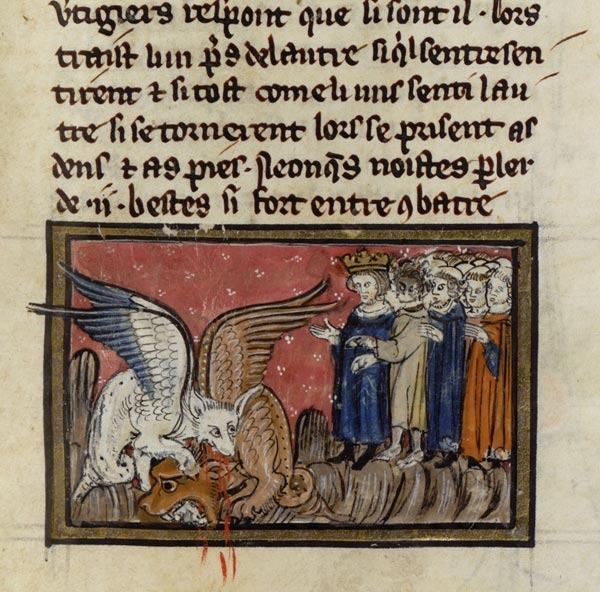 vtigiers respont que si sont il · lors
traist lun p̃s de lautre si q̃l sentresen
tirent ⁊ si tost come li uns senti lau
tre si se tornerent lors se prisent as
dens ⁊ as pies · Neonq̃s noistes p̃ler
de · ij · bestes si fort entre ꝯbatre